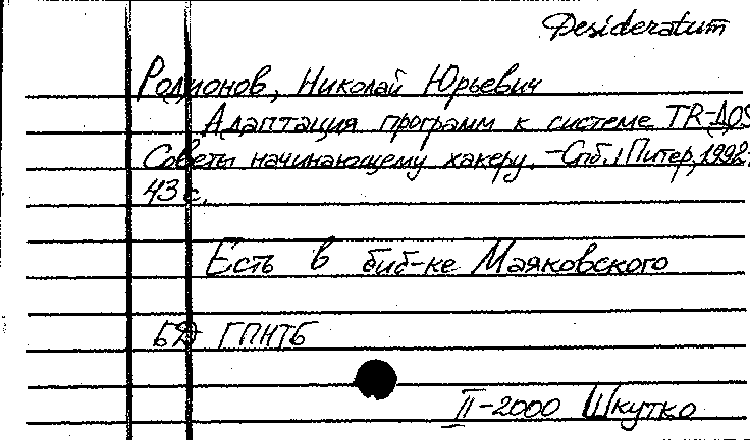 Desideratum
Родионов, Николай Юрьевич
Адаптация программ к системе TR-DOS
Советы начинающему хакеру. -Спб.: Питер, 1992.
43 с.
Есть в биб-ке Маяковского
БД ГПНТБ
II-2000 Шкутко